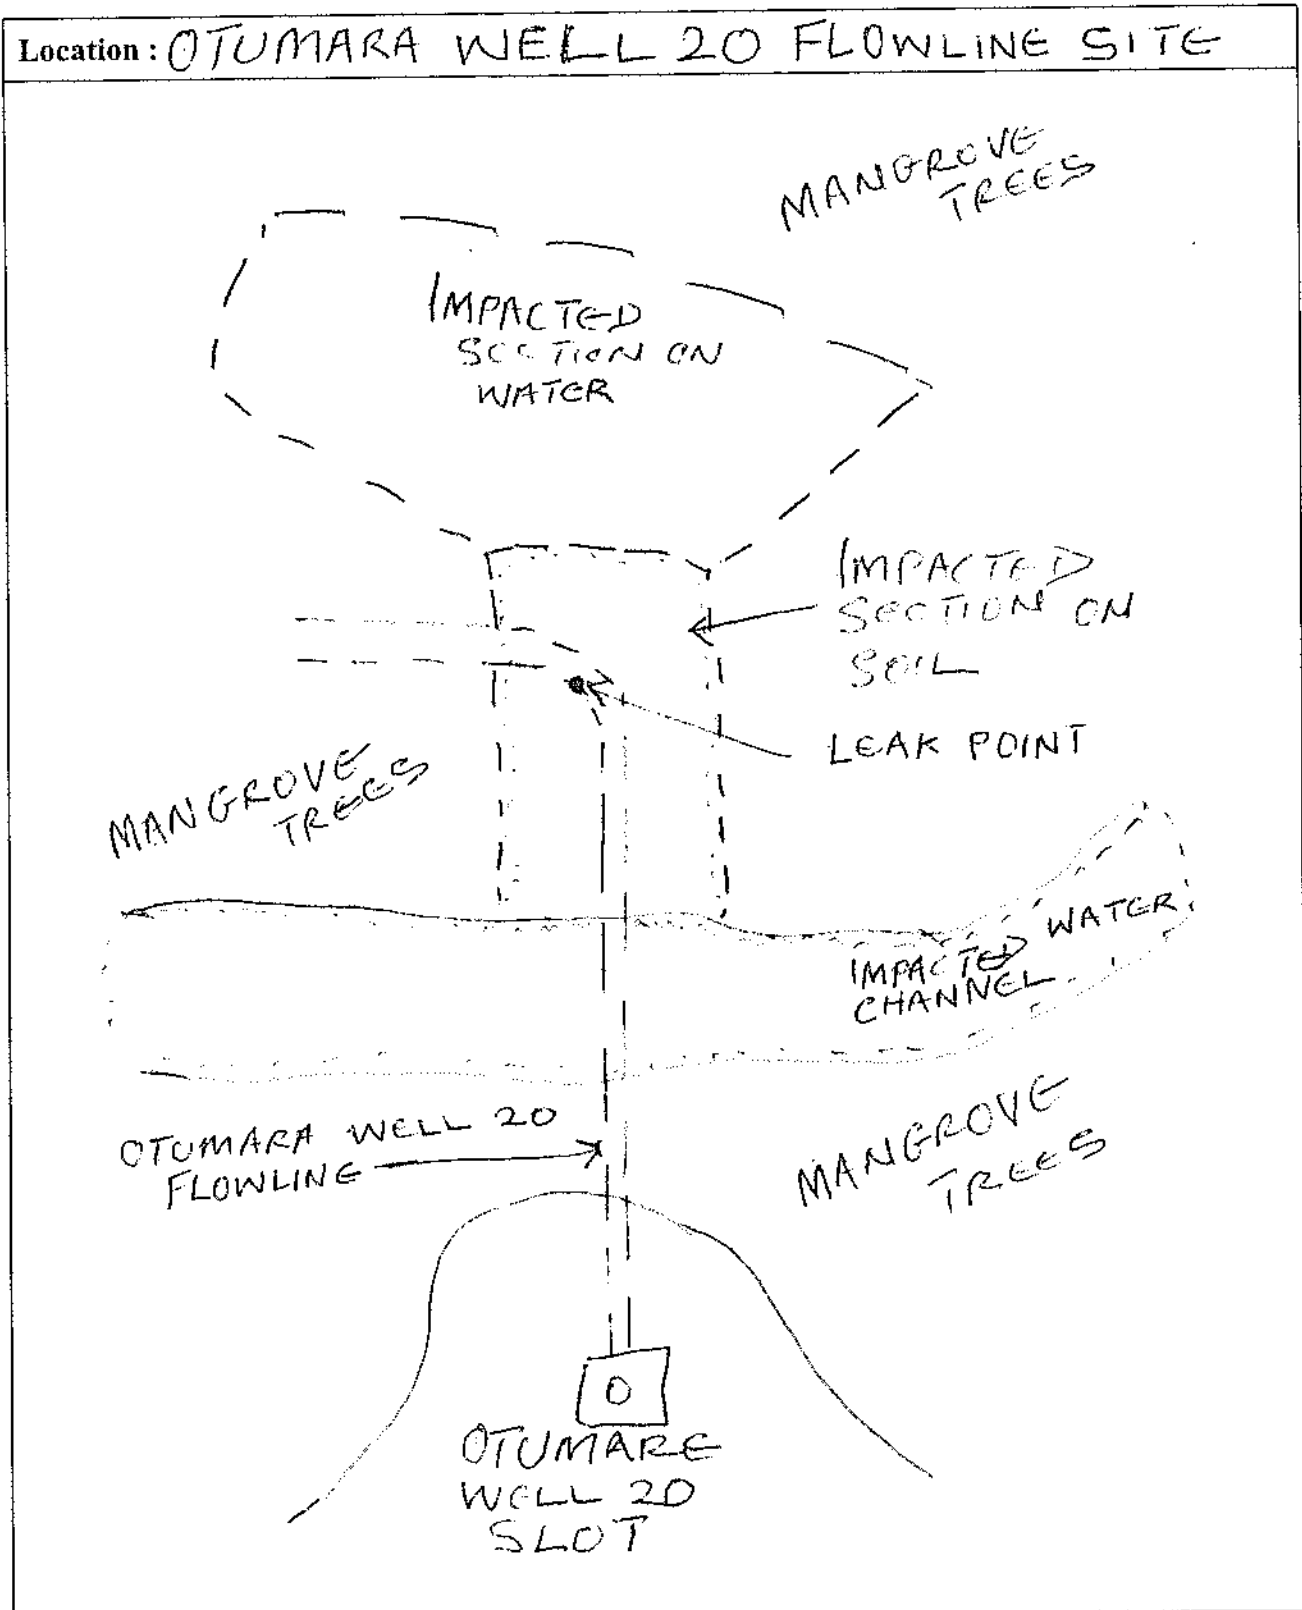 Location : OTUMARA WELL 20 FLOWLINE SITE
MANGROVE
TREES
IMPACTED
SECTION ON
WATER
IMPACTED
SECTION ON
SOIL
LEAK POINT
MANGROVE
TREES
IMPACTED WATER
CHANNEL
OTUMARA WELL 20
FLOWLINE
MANGROVE
TREES
O
OTUMARE
WELL 20
SLOT